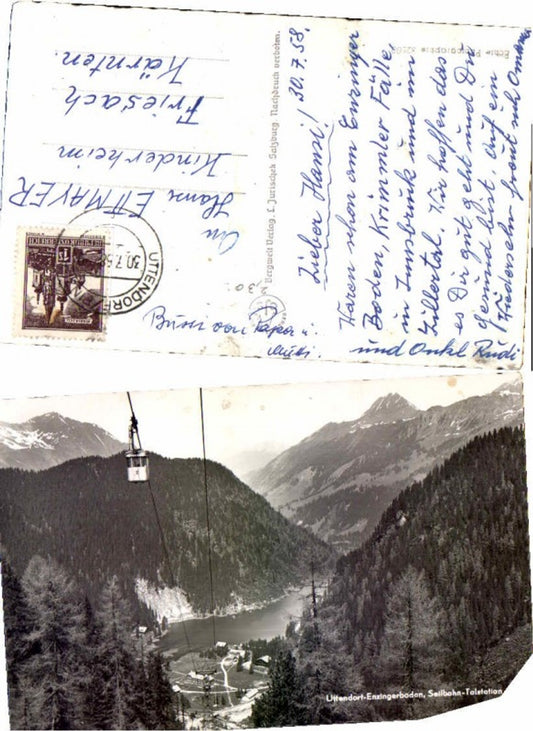 Lieber Hansi! 30.7.58.
Waren schon am Enzinger
Boden, Krimmler Fälle,
in Innsbruck und im
Zillertal. Wir hoffen das
es Dir gut geht und Du
gesund bist. Auf ein
Wiedersehn freut sich Omama
und Onkl Rudi
Bussi von Papa u.
Mutti.
An
Hansi ETTMAYER
Kinderheim
Friesach
Kärnten.
Bergwelt Verlag, L. Jurischek Salzburg Nachdruck verboten.
UTTENDORF
30.7.58
Uttendorf-Enzingerboden, Seilbahn-Talstation